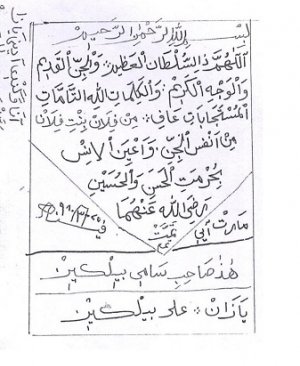 بسم الله الرحمن الرحيم
اَللّٰهُمَّ ذَ السُّلطَانِ العَظِيمِ ۞ وَالْمَنِّ القَدِيمِ
وَالوَجهِ الكَرِيمْ ۞ وَالكَلِمَاتِ اللهِ التَّامَّاتِ
اَلمُستَجَابَاتِ عَافِ ۞ مِن فُلَانْ بِنْتِ فِلَانْ
مِنْ اَنفُسِ الجِنِّ ۞ وَاَعيُنِ اْلاِنْسِ
بِحُرْمَتِ الْحَسَنِ وَالْحُسَيْنِ
رَضِيَ الله عَنهُمَا
مَارِتْ
هٰذَ صَاحِبِ سَامِي بِيلكِينْ
يَازَانْ ۞ عَلِى بِيلكِينْ